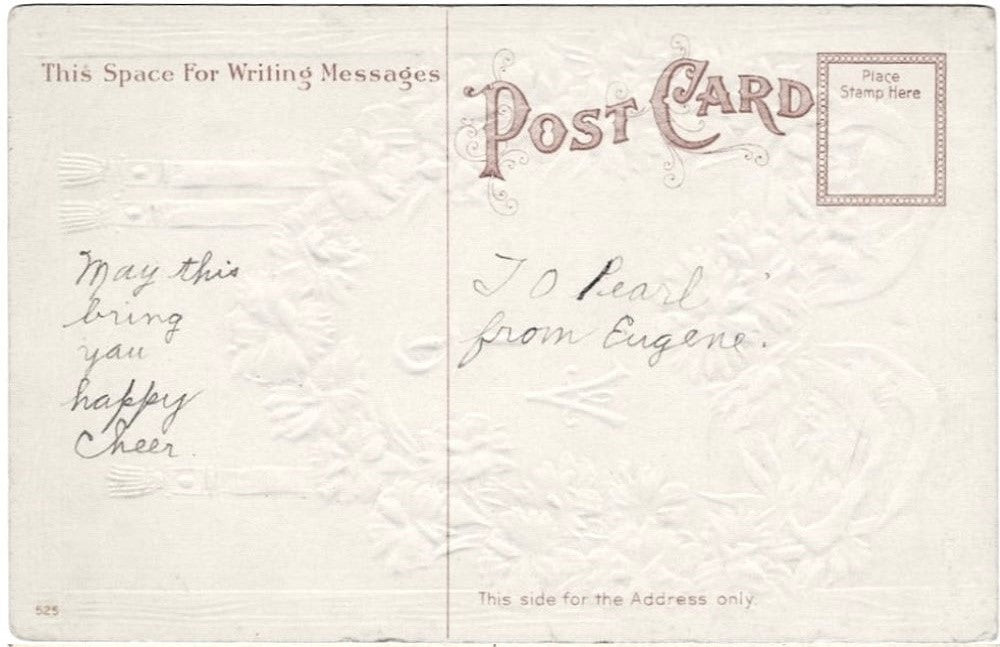 This Space For Writing Messages
POST CARD
Place
Stamp Here
May this
bring
you
happy
Cheer.
To Pearl
from Eugene.
This side for the Address only.
525